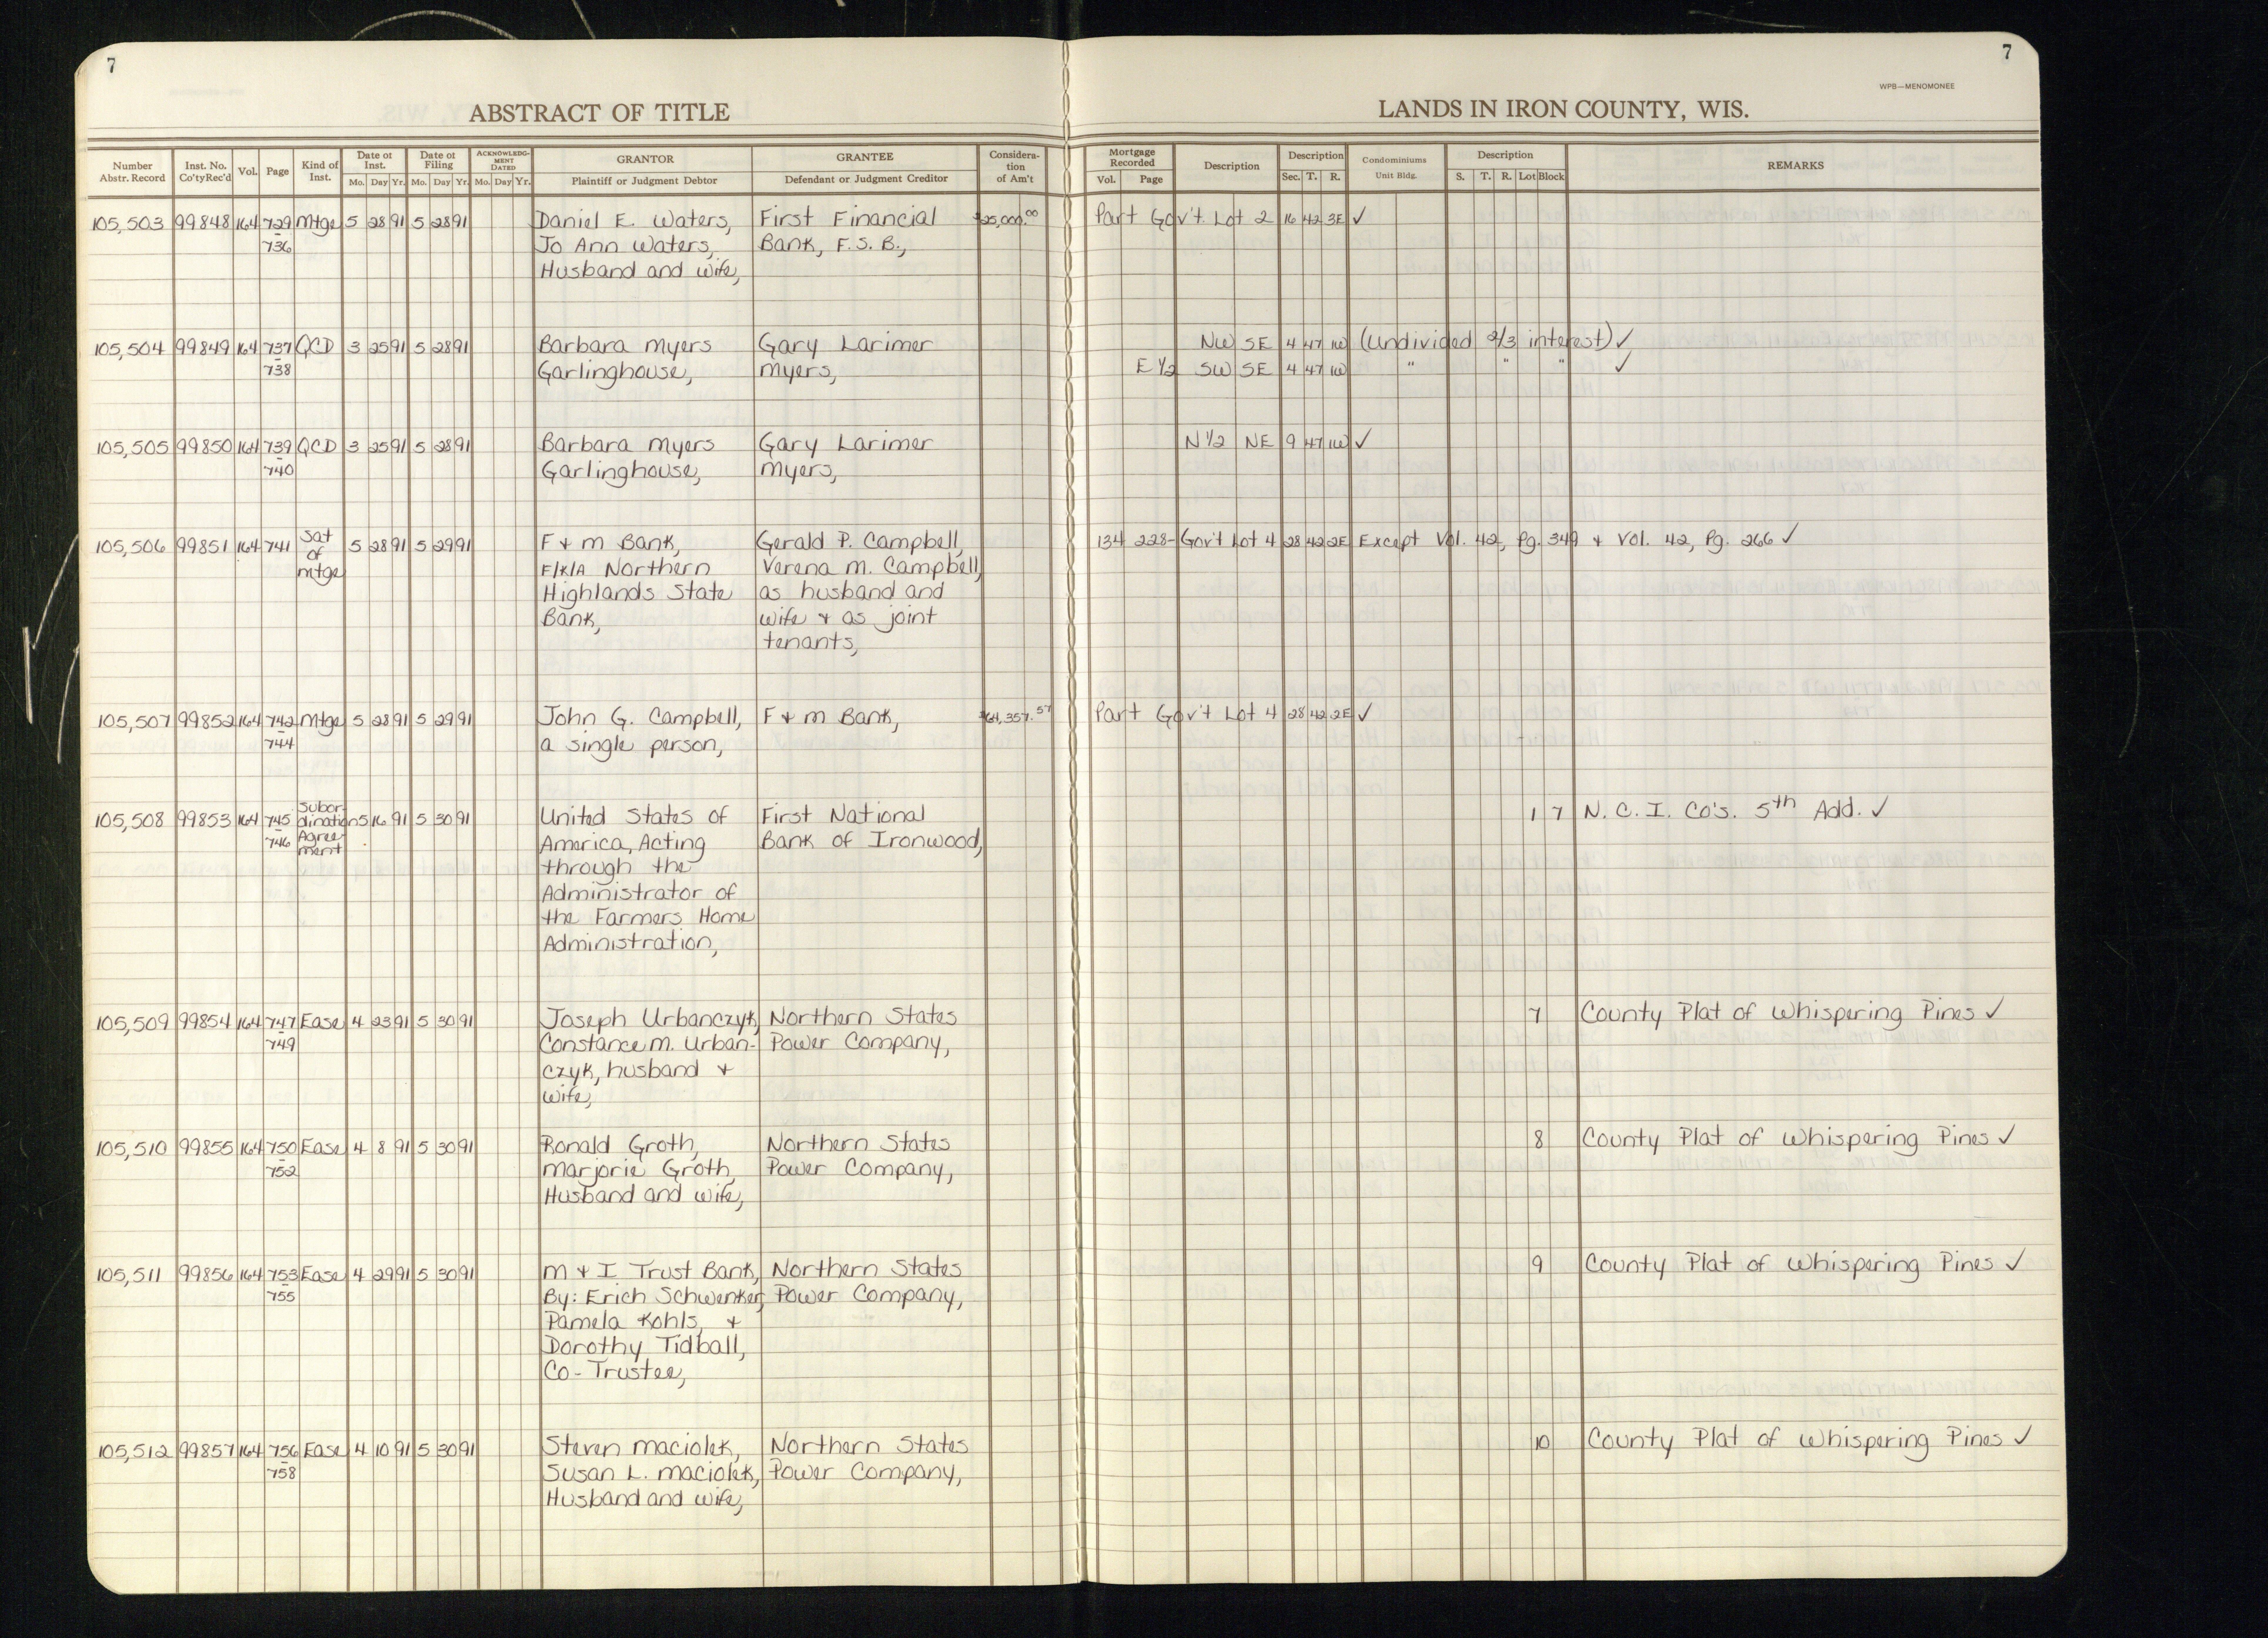 7
7
WPB—MENOMONEE
ABSTRACT OF TITLE
LANDS IN IRON COUNTY, WIS.
Number Abstr. Record
Inst. No. Co'ty Rec'd
Vol.
Page
Kind of Inst.
Date of Inst.
Mo. Day Yr.
Date of Filing
Mo. Day Yr.
ACKNOWLEDG-MENT DATED
Mo. Day Yr.
GRANTOR
Plaintiff or Judgment Debtor
GRANTEE
Defendant or Judgment Creditor
Considera-tion of Am't
Mortgage Recorded
Vol. Page
Description
Description
Sec. T. R.
Condominiums
Unit Bldg.
Description
S. T. R. Lot Block
REMARKS
105,503 99848 164 729 Mtge 5 28 91 5 28 91 Daniel E. Waters, First Financial $25,000.00 Part Gov't. Lot 2 16 42 3E ✓
736 Jo Ann Waters, Bank, F.S.B.,
Husband and Wife,
105,504 99849 164 737 QCD 3 25 91 5 28 91 Barbara Myers Gary Larimer NW SE 4 47 1W (Undivided 2/3 interest) ✓
738 Garlinghouse, Myers, E 1/2 SW SE 4 47 1W " " " ✓
105,505 99850 164 739 QCD 3 25 91 5 28 91 Barbara Myers Gary Larimer N 1/2 NE 9 47 1W ✓
740 Garlinghouse, Myers,
105,506 99851 164 741 Sat of Mtge 5 28 91 5 29 91 F & M Bank, Gerald P. Campbell, 134 228- Gov't Lot 4 28 42 2E Except Vol. 42, Pg. 349 & Vol. 42, Pg. 266 ✓
F/K/A Northern Verena M. Campbell,
Highlands State as husband and
Bank, wife & as joint
tenants,
105,507 99852 164 742 Mtge 5 28 91 5 29 91 John G. Campbell, F & M Bank, $64,357.57 Part Gov't Lot 4 28 42 2E ✓
744 a single person,
105,508 99853 164 745 Subor-dination Agree-ment 5 16 91 5 30 91 United States of First National 1 7 N. C. I. Co's. 5th Add. ✓
746 America, Acting Bank of Ironwood,
through the
Administrator of
the Farmers Home
Administration,
105,509 99854 164 747 Ease 4 23 91 5 30 91 Joseph Urbanczyk, Northern States 7 County Plat of Whispering Pines ✓
749 Constance M. Urban- Power Company,
czyk, husband &
wife,
105,510 99855 164 750 Ease 4 8 91 5 30 91 Ronald Groth, Northern States 8 County Plat of Whispering Pines ✓
752 Marjorie Groth, Power Company,
Husband and Wife,
105,511 99856 164 753 Ease 4 29 91 5 30 91 M & I Trust Bank, Northern States 9 County Plat of Whispering Pines ✓
755 By: Erich Schwenker, Power Company,
Pamela Kohls, &
Dorothy Tidball,
Co-Trustee,
105,512 99857 164 756 Ease 4 10 91 5 30 91 Steven Maciolek, Northern States 10 County Plat of Whispering Pines ✓
758 Susan L. Maciolek, Power Company,
Husband and Wife,